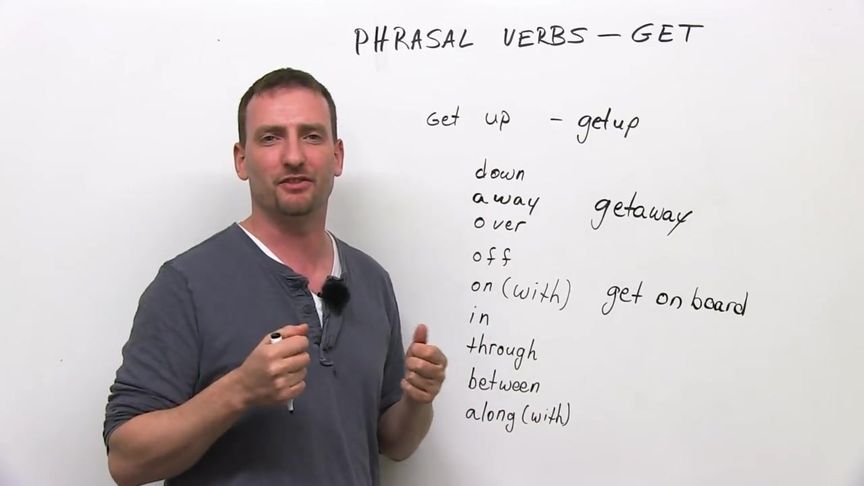 PHRASAL VERBS — GET
Get up - getup
down
away getaway
over
off
on (with) get on board
in
through
between
along (with)